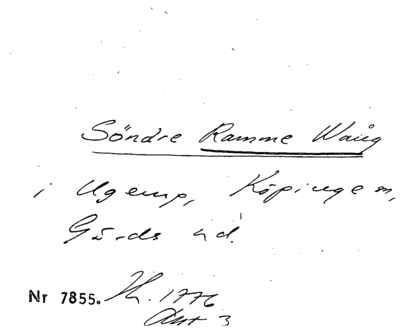 Söndre Ramme Wång
i Ugerup, Köpinge sn,
Gärds hd.
Nr 7855. Jk. 1776
Akt 3